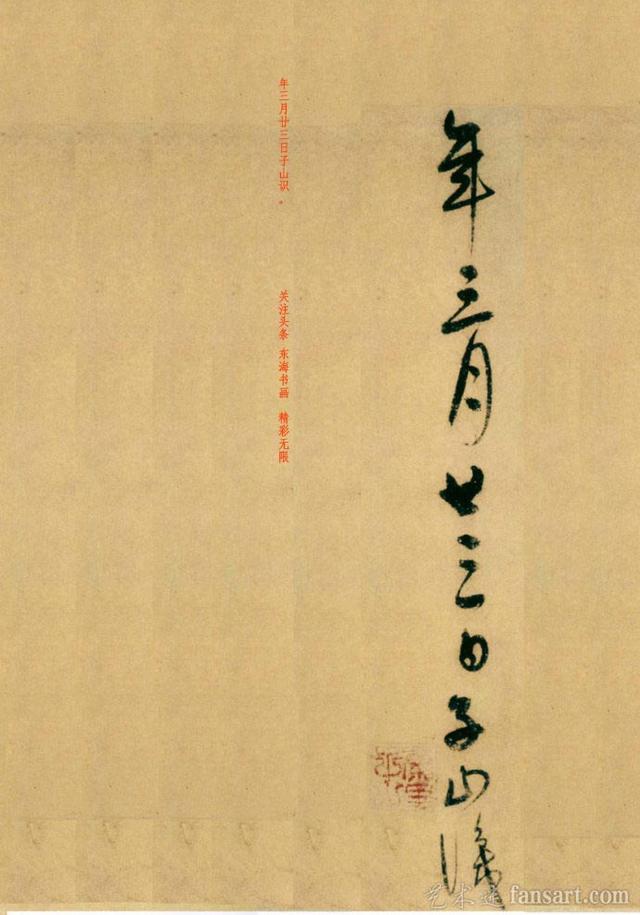 年三月廿三日子山識
年三月廿三日子山识。
关注头条 东海书画 精彩无限
艺术迷 fansart.com